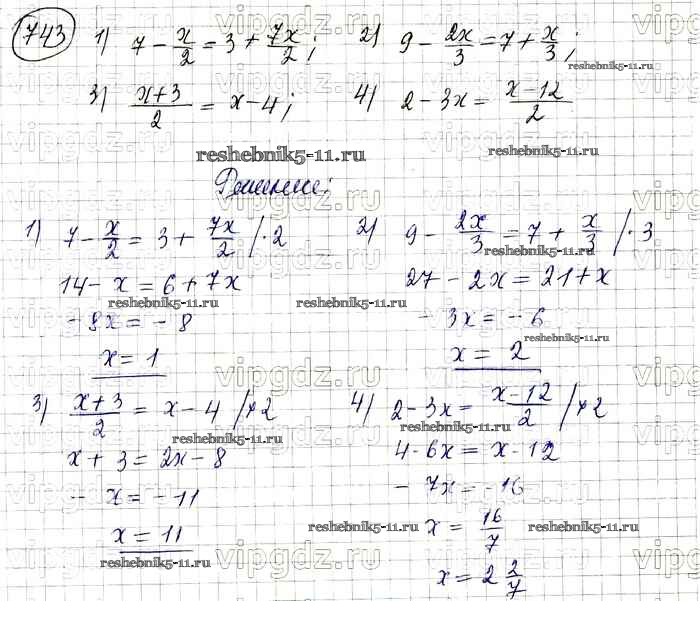 743 1) 7 - x/2 = 3 + 7x/2; 2) 9 - 2x/3 = 7 + x/3;
3) (x+3)/2 = x - 4; 4) 2 - 3x = (x-12)/2
Решение:
1) 7 - x/2 = 3 + 7x/2 /·2
14 - x = 6 + 7x
- 8x = - 8
x = 1
2) 9 - 2x/3 = 7 + x/3 /·3
27 - 2x = 21 + x
- 3x = - 6
x = 2
3) (x+3)/2 = x - 4 /·2
x + 3 = 2x - 8
- x = - 11
x = 11
4) 2 - 3x = (x-12)/2 /·2
4 - 6x = x - 12
- 7x = - 16
x = 16/7
x = 2 2/7
vipgdz.ru
reshebnik5-11.ru